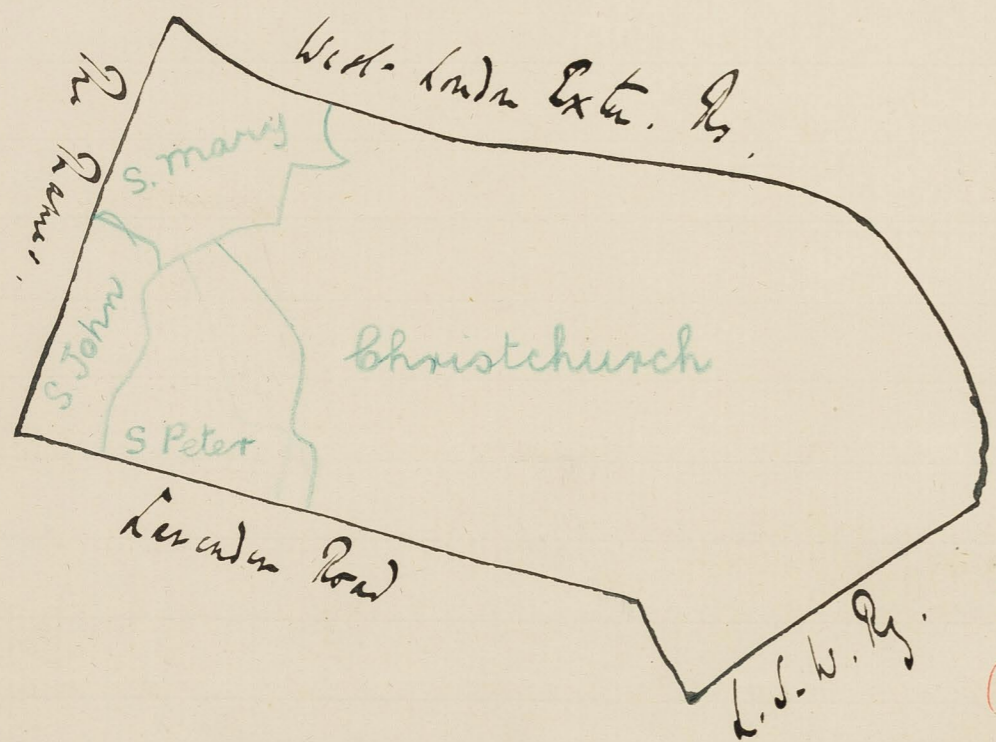 West London Exten. Ry.
The Thames.
S. Marys
S John
Christchurch
S Peter
Lavender Road
L. S. W. Ry.